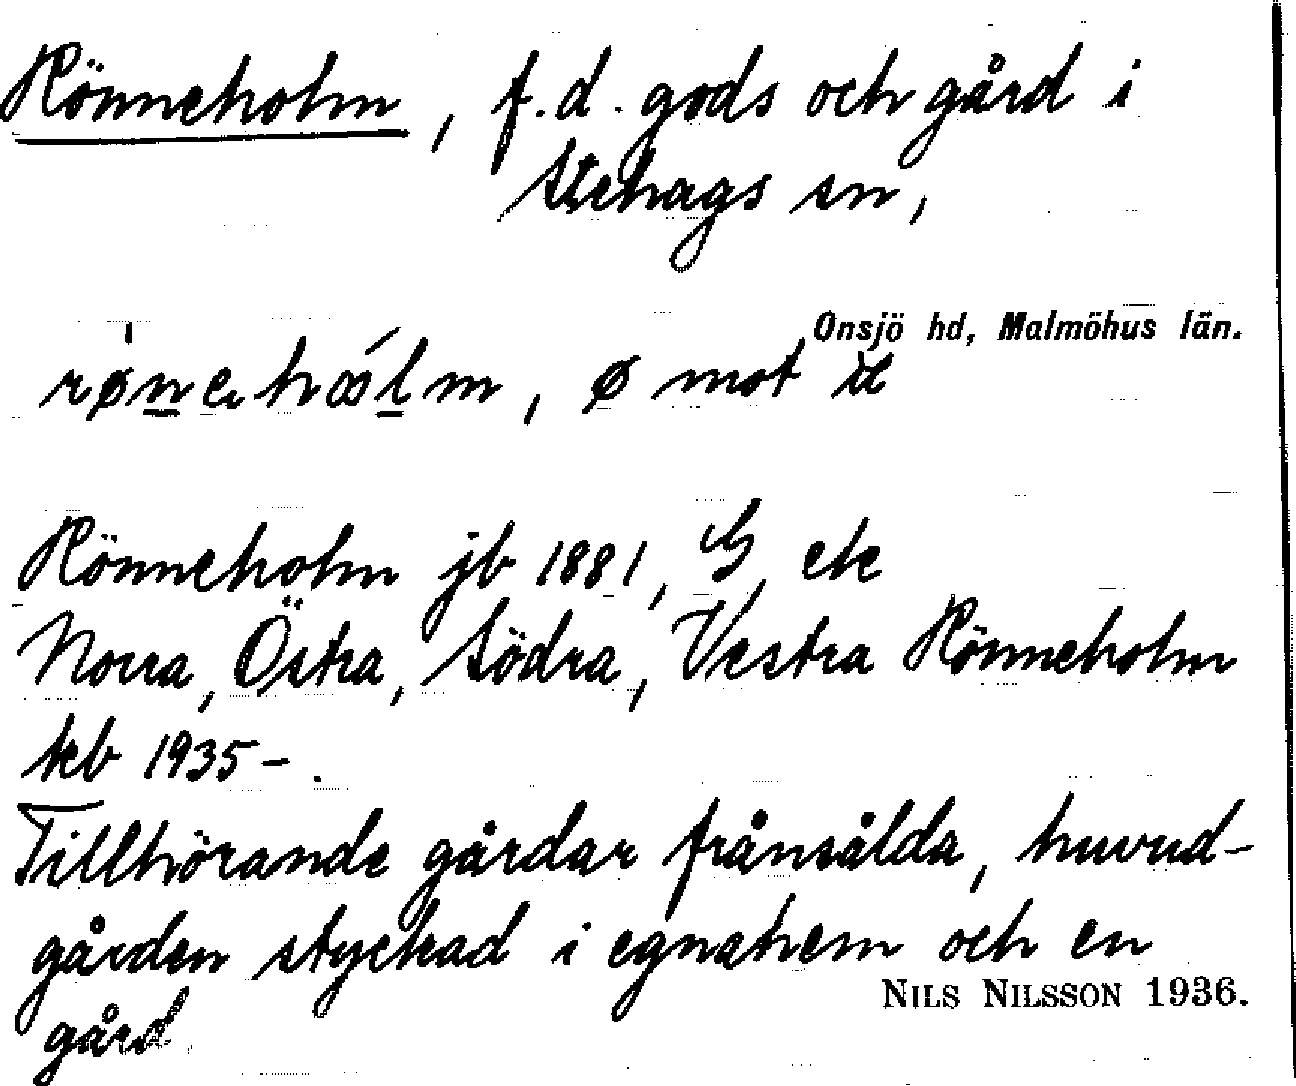 Rönneholm, f.d. gods och gård i
Stehags sn,
Onsjö hd, Malmöhus län.
mot
Rönneholm jb 1881, G, ek
Norra, Östra, Södra, Vestra Rönneholm
kb 1935-.
Tillhörande gårdar frånsålda, huvud-
gården styckad i egnahem och en
gård
NILS NILSSON 1936.